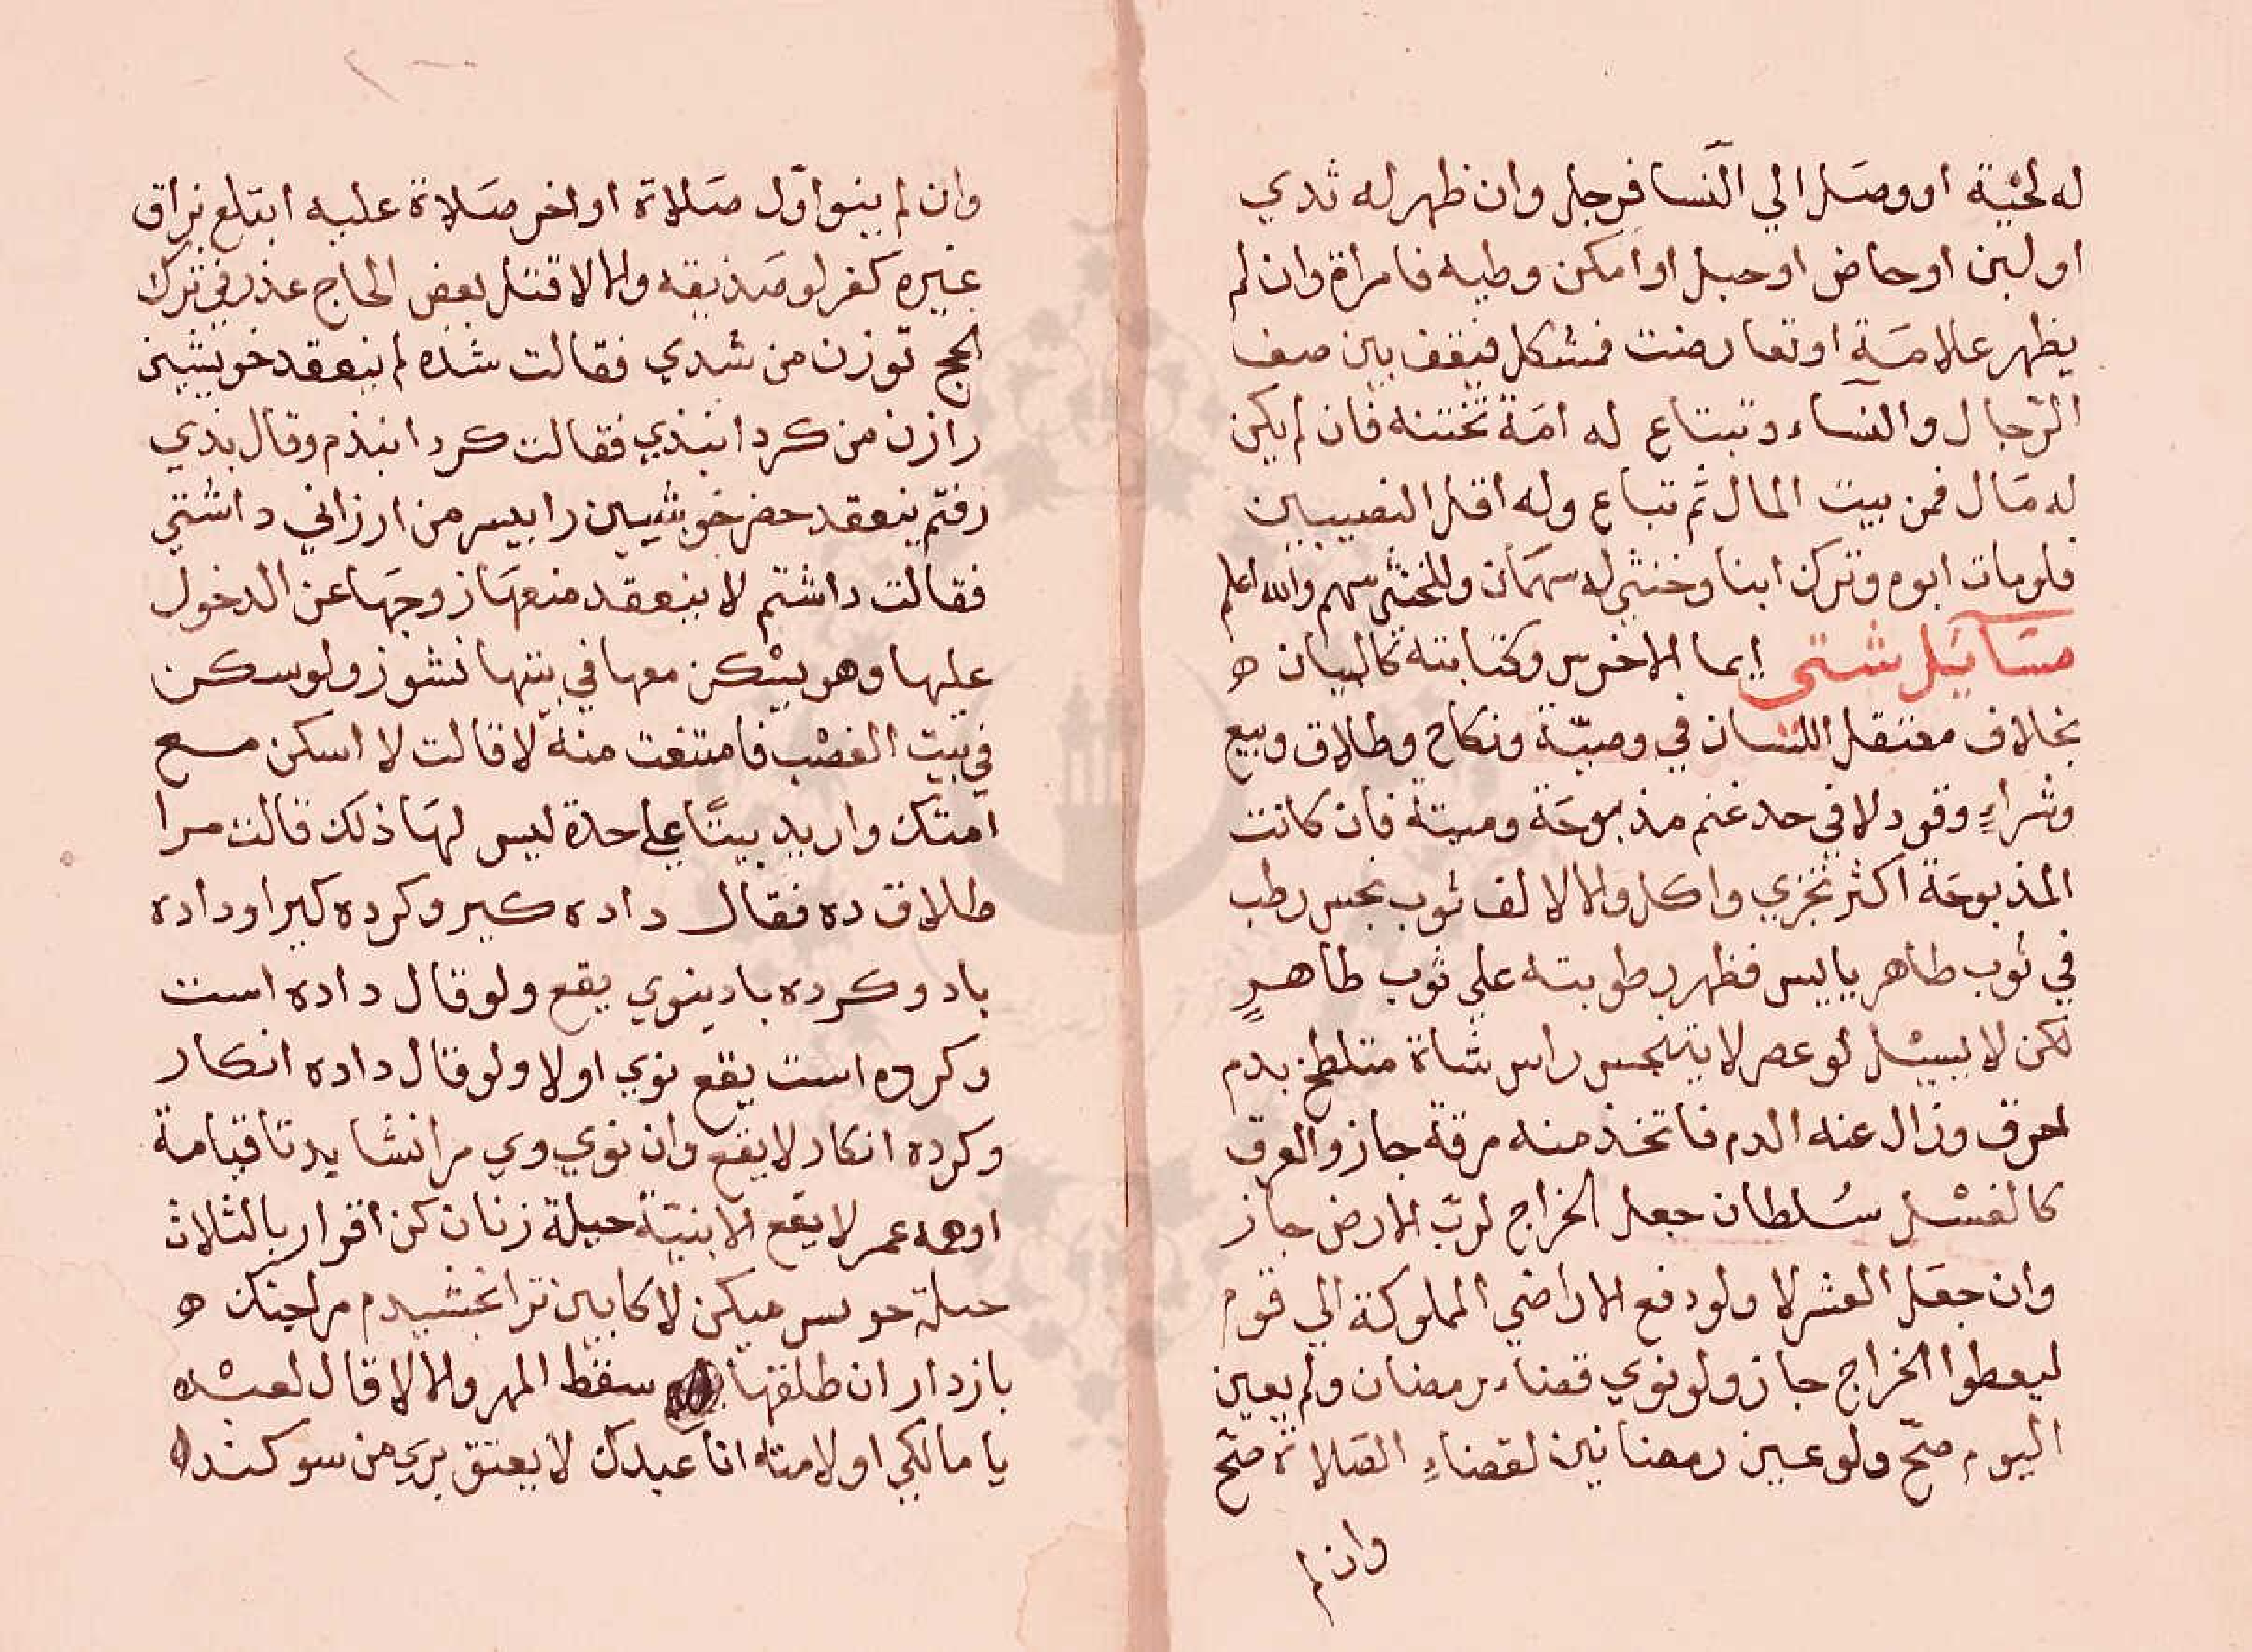 له لحْيَة او وصَل الي النّسا فرجل وان ظهر له ثدي
او لبن او حاض او حبل او امكن وطيه فامراة وان لم
يظهر علامَة او تعارضت فمشكل فيقف بين صف
الرّجال والنّساء وتبتاع له امَة تختنه فان لم يكن
له مَال فمن بيت المال ثم تباع وله اقل النصيبين
فلو مات ابوه وترك ابنا وخنثي له سهمَان وللخنثي سهم والله اعلم
مسَايَل شتى ايما الاخرس وكتابته كالبيان ه
بخلاف معتقل اللسان في وصيّة ونكاح وطلاق وبيع
وشراءٍ وقود لا في حد غنم مذبوحَة وميتة فان كانت
المذبوحَة اكثر تجزي واكل والا لا لف ثوب نجس رطب
في ثوب طاهر يابيس فظهر رطوبته علي ثوب طاهرٍ
لكن لا يسيْل لو عصر لا يتنجس راس شاة متلطخ بدم
احرق وزال عنه الدم فاتخذ منه مرقة جاز والحرق
كالغسْل سُلطان جعل الخراج لربّ الارض جاز
وان جعَل العشر لا ولو دفع الاراضي المملوكة الي قوم
ليعطوا الخراج جاز ولو نوي قضاء رمضان ولم يعين
اليوم صحّ ولو عين رمضانين لقضاءِ الصَلاة صحّ
وان لم
وان لم ينو اوّل صَلاة او اخر صَلاة عليه ابتلع بزاق
غيره كفر لو صَديقه والا لا قتل بعض الحاج عذر في ترك
الحج تو زن من شدي فقالت شده لم ينعقد خويشين
رازن من كردانيذي فقالت كردانيذم وقال بذي
رفتم ينعقد حضر خويشين رابيسر من ارزاني داشتي
فقالت داشتم لا ينعقد منعهَا زوجهَا عن الدخول
عليها وهو يسْكن معها في بيتها نشوز ولو سكن
في بيت الغصْب فامتنعت منه لا قالت لا اسكن مع
امتك واريد بيتًا علي حدة ليس لهَا ذلك قالت مرا
طلاق ده فقال داده كير وكرده كير او داده
باد وكرده باد ينوي يقع ولو قال داده است
وكرده است يقع نوي اولا ولو قال داده انكار
وكرده انكار لا يقع وان نوي وي مرا نشايد تا قيامة
او همه عمر لا يقع الا بنيّة حيلة زنان كن اقرار بالثلاث
حيلة خويس ميكن لا كابين ترا بخشيدم مراجنك ه
بازدار ان طلقها سقط المهر والا لا قال لعبْده
يا مالكي او لامته انا عبدك لا يعتق بري من سوكند